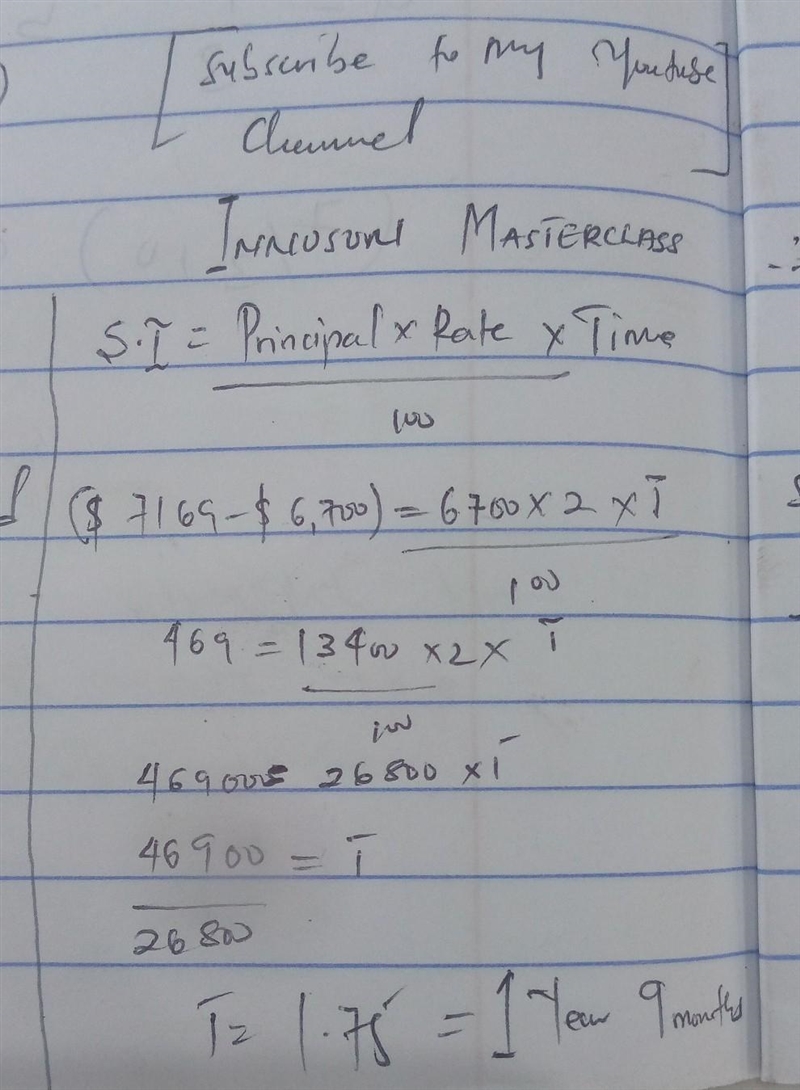 [Subscribe to my Youtube
Channel]
INNIOSONI MASTERCLASS
S.I = Principal x Rate x Time
100
($ 7169 - $ 6,700) = 6700 x 2 x T
100
469 = 13400 x 2 x T
100
46900 = 26800 x T
46900 = T
26800
T = 1.75 = 1 Year 9 months